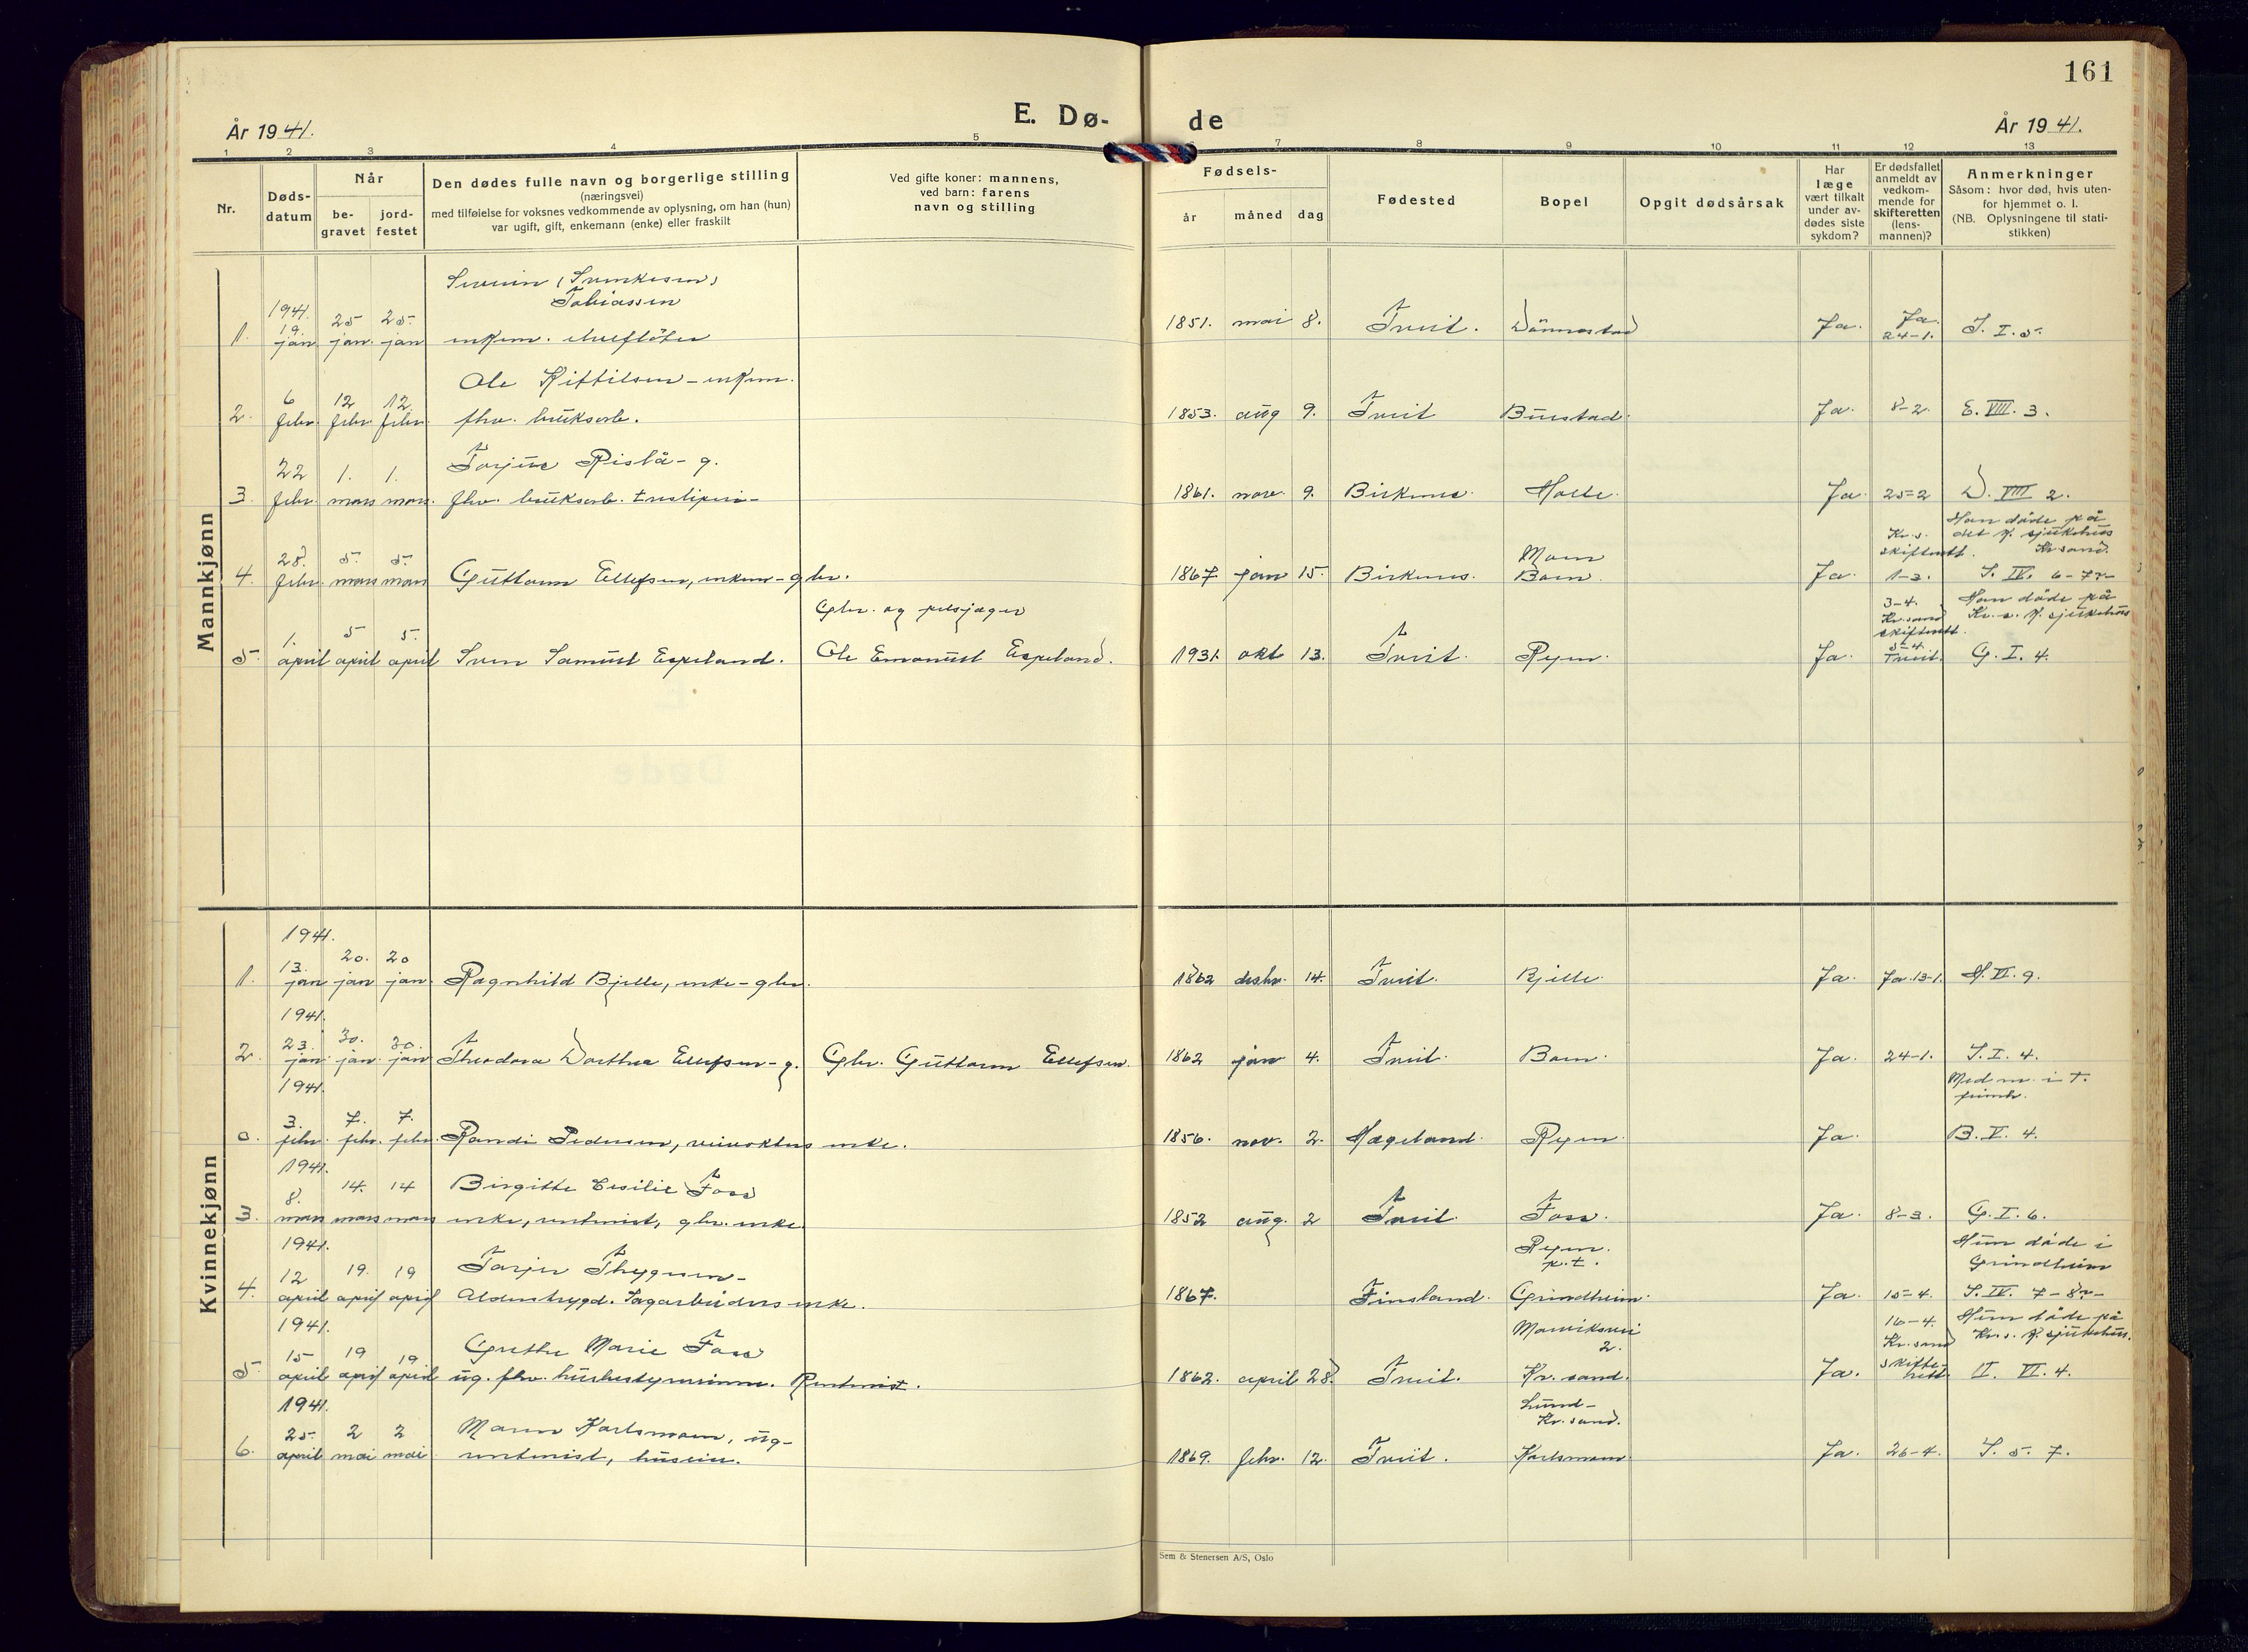 161
E. Dø-
de
År 1941.
År 1941.
1 2 3 4 5
7 8 9 10 11 12 13
Nr.
Døds-
datum
Når
be-
gravet
jord-
festet
Den dødes fulle navn og borgerlige stilling
(næringsvei)
med tilføielse for voksnes vedkommende av oplysning, om han (hun)
var ugift, gift, enkemann (enke) eller fraskilt
Ved gifte koner: mannens,
ved barn: farens
navn og stilling
Fødsels-
år måned dag
Fødested
Bopel
Opgit dødsårsak
Har
læge
vært tilkalt
under av-
dødes siste
sykdom?
Er dødsfallet
anmeldt av
vedkom-
mende for
skifteretten
(lens-
mannen)?
Anmerkninger
Såsom: hvor død, hvis uten-
for hjemmet o. l.
(NB. Oplysningene til stati-
stikken)
Mannkjønn
1941.
Tobiassen
1. 19. jan 25 jan. 25. jan enkem.
1851. mai 8. Tveit. Dønnestad Ja. Ja. 24-1. S. I. 5.
Ole Kittilsen - enkem.
2. 6 febr. 12 febr. 12 febr. fhv. bruksarb.
1853. aug 9. Tveit Buestad. Ja. 8-2. E. VIII. 3.
Torjus Rislå - g.
3. 22 febr. 1. mars 1. mars. fhv. bruksarb. tresliperi-
1861. nov. 9. Birkenes. Ja. 25-2 D. VIII 2.
Han døde på
det k. sjukehus
Kr.sand.
Kr.s.
skifterett.
Moen
4. 28. febr. 5. mars 5. mars Guttorm Ellefsen, enkem - gbr.
1867 jan 15. Birkenes. Boen. Ja. 1-3. S. IV. 6-7
Gbr. og pelsjæger
3-4.
Kr.sand
skifterett.
Han døde på
Kr.s. k. sjukehus
5. 1. april 5 april 5. april Sven Samuel Espeland. Ole Emanuel Espeland.
1931. okt 13. Tveit. Ryen. Ja. 5-4 Tveit. G. I. 4.
Kvinnekjønn
1941.
1. 13. jan 20. jan 20 jan. Ragnhild Bjelle, enke - gbr.
1862 desbr. 14. Tveit. Bjelle. Ja. Ja. 13-1. H. VI. 9.
1941.
2. 23. jan. 30. jan. 30. jan Theodora Dorthea Ellefsen - g. Gbr. Guttorm Ellefsen.
1862 jan 4. Tveit. Boen. Ja. 24-1. S. I. 4.
1941.
Med nr. i T.
0. 3. febr. 7. febr. 7. febr. Randi Pedersen, veivokters enke.
1856. nov. 2. Hægeland. Ryen. Ja. B. V. 4.
1941.
Birgitte Cesilie Foss
3. 8. mars 14. mars 14 mars enke, rentenist, gbr. enke.
1852 aug. 2 Tveit. Foss. Ja. 8-3. G. I. 6.
1941.
Ryen.
p.t.
Hun døde i
Grindheim
4. 12 april 19. april 19 april Alderstrygd. Sagarbeiders enke.
1867. Finsland. Grindheim. Ja. 15-4. S. IV. 7-8
1941.
Grethe Marie Foss
2.
16-4.
Kr.sand
Hun døde på
Kr.s. k. sjukehus.
5 15 april 19 april 19 april ug. fhv. husbestyrerinne. Rentenist.
1862. april 28. Tveit. Kr.sand. Ja. skifte-
rett II. VI. 4.
1941.
Lund -
Kr.sand.
Maren Karlsmoen, ug-
6. 25. april 2 mai 2 mai rentenist, huseier.
1869. febr. 12. Tveit. Karlsmoen. Ja. 26-4. S. 5. 7.
Sem & Stenersen A/S, Oslo